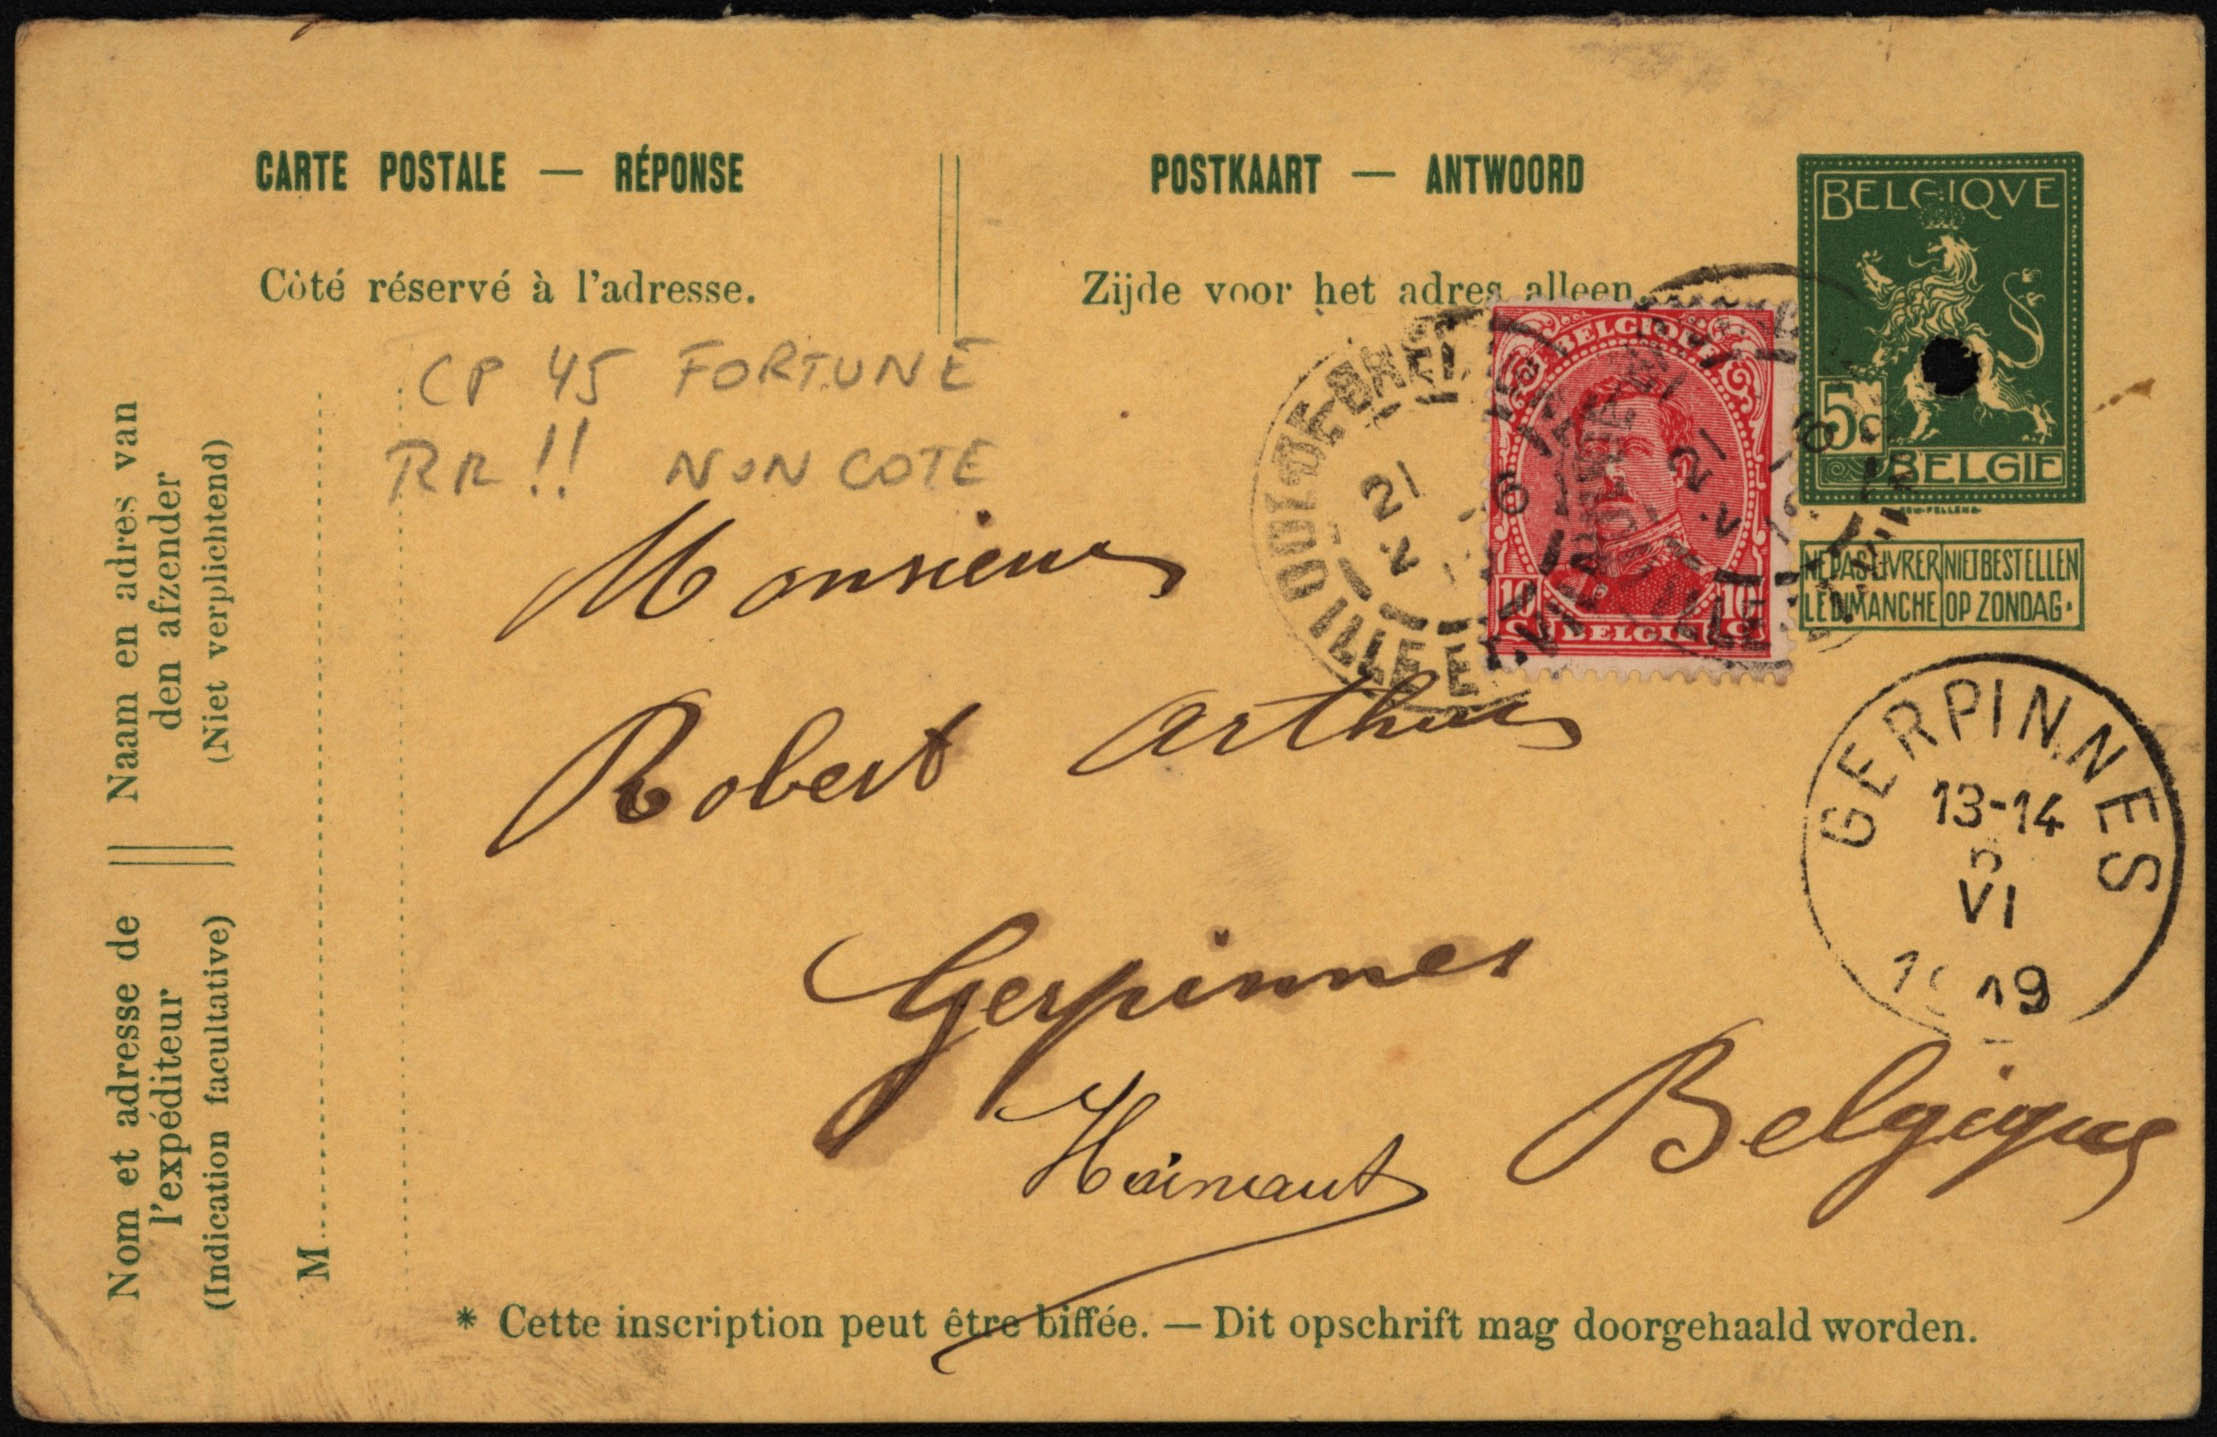 CARTE POSTALE — RÉPONSE
POSTKAART — ANTWOORD
Côté réservé à l'adresse.
Zijde voor het adres alleen.
BELGIQVE
5c
BELGIE
NE PAS LIVRER LE DIMANCHE
NIET BESTELLEN OP ZONDAG.
CP 45 FORTUNE
RR !! NON COTE
BELGIQUE
10 10
BELGIE
21
6
ILLE ET VI
21
6
ILLE
Monsieur
Robert Arthur
Gerpinnes
Hainaut
Belgique
GERPINNES
13-14
VI
Naam en adres van
den afzender
(Niet verplichtend)
Nom et adresse de
l'expéditeur
(Indication facultative)
M
* Cette inscription peut être biffée. — Dit opschrift mag doorgehaald worden.